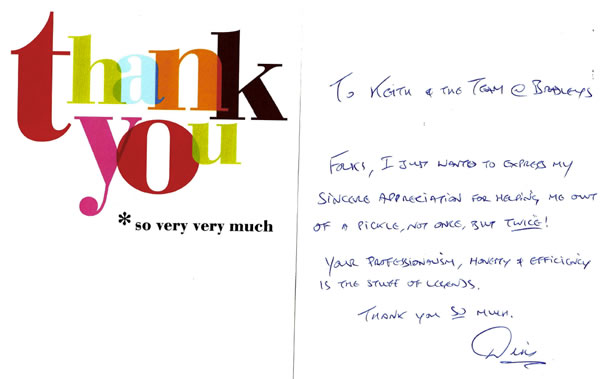 thank
you
* so very very much
To Keith & the Team @ Bradleys
Folks, I just wanted to express my
sincere appreciation for helping me out
of a pickle, not once, but twice!
Your professionalism, honesty & efficiency
is the stuff of legends.
Thank you so much.